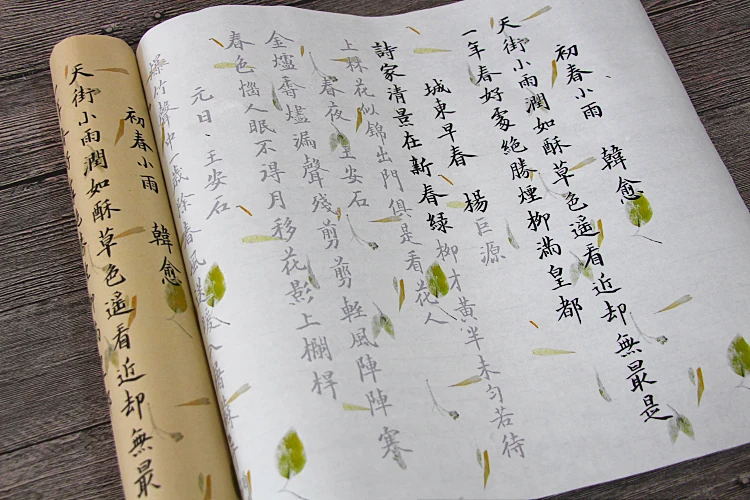 初春小雨 韓愈
天街小雨潤如酥草色遙看近却無最是
一年春好處絕勝煙柳滿皇都
城東早春 楊巨源
詩家清景在新春綠柳才黃半未匀若待
上林花似錦出門俱是看花人
春夜 王安石
金爐香燼漏聲殘剪翦輕風陣陣寒
春色惱人眠不得月移花影上欄桿
元日、王安石
爆竹聲中一歲除春風送
初春小雨 韓愈
天街小雨潤如酥草色遙看近却無最